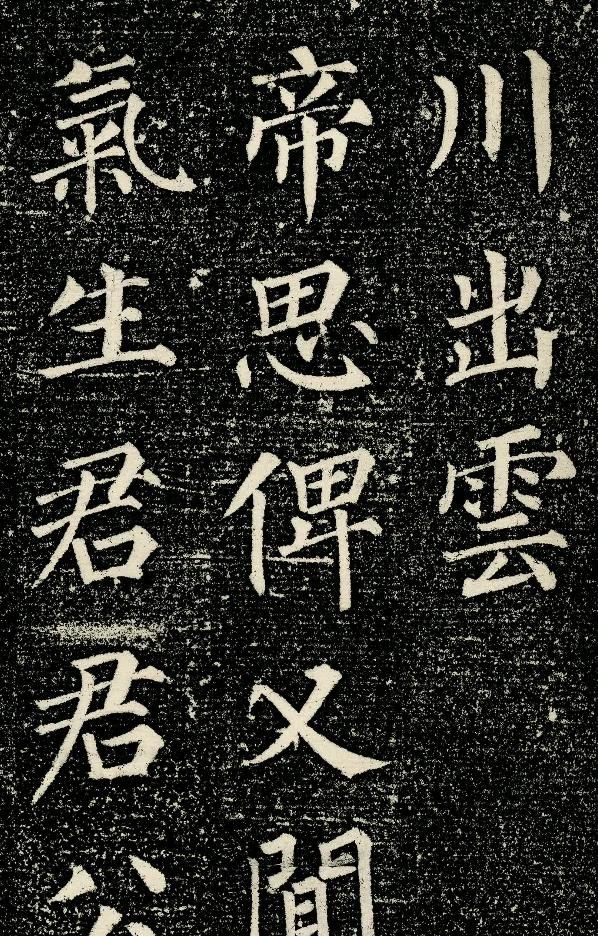 川出雲
帝思俾乂間
氣生君君公